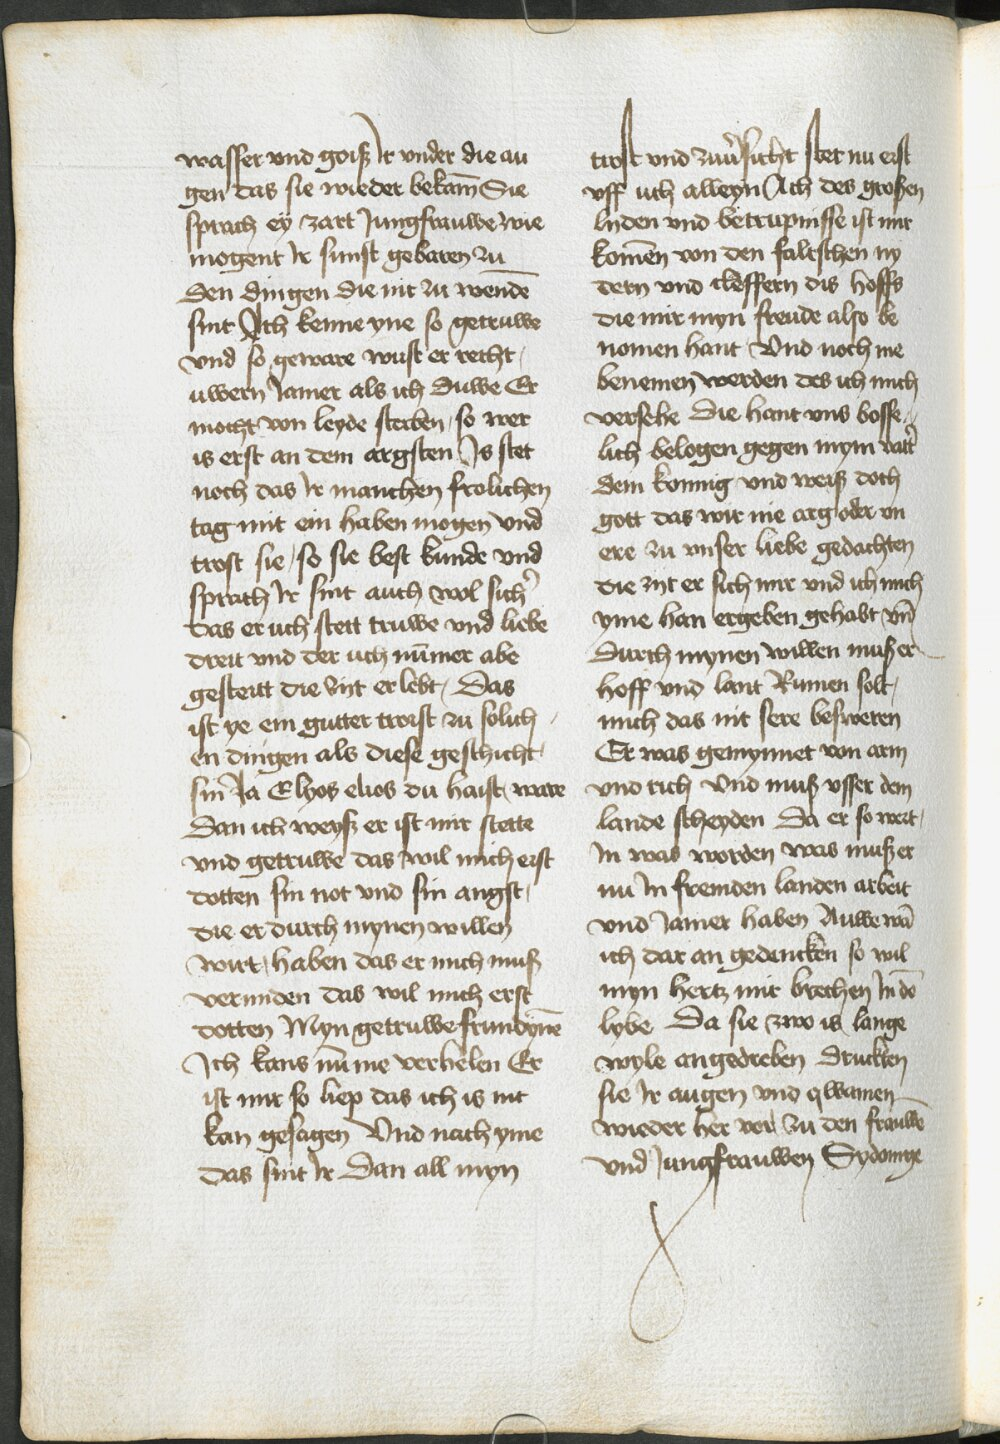 wasser vnd goiß Ir vnder die au
gen das sie wieder bekam̄ Sie
sprach ey zart Jungfrauwe wie
mogent Ir sunst gebaren zu
den dingen die nit zu wendē
sint Ich kenne yne so getruwe
vnd so geware wust er recht
uwern Jamer als ich duwe Er
mocht von leyde sterben so wer
is erst an dem argsten Is stet
noch das Ir manchen frolichen
tag mit ein haben mogen vnd
trost sie so sie best kunde vnd
sprach Ir sint auch wol sich͛
das er uch stett truwe vnd liebe
dreit vnd der uch nūmer abe
gesteitt die zijt er lebt Das
ist ye ein gutter troist zu solich
en dingen als diese geschicht
sin Ja Elyos elios du haist ware
dan ich weyß er ist mir stette
vnd getruwe das wil mich erst
dotten sin not vnd sin angst
die er durch mynen willen
wirt haben das er mich muß
vermiden das wil mich erst
dotten Myn getruwe frundynē
Ich kans nūme verhelen Er
ist mir so liep das ich is nit
kan gesagen Vnd nach yme
das sint Ir dan all myn
trost vnd zuu͛sicht stet nu erst
vff uch alleyn Ach des großen
lyden vnd betrupnisse ist mir
komēn von den faltschen ny
dern vnd cleffern dis hoffs
die mir myn freude also be
nomen hant Vnd noch me
benemen werden des ich mich
versehe Die hant vns bosse
lich belogen gegen mym vatt͛
dem konnig vnd weiß doch
gott das wir nie arg oder vn
ere zu vnser liebe gedachten
die zijt er sich mir vnd ich mich
yme han ergeben gehabt vn̄
durch mynen willen muß er
hoff vnd lant Rumen solt
mich das nit sere besweren
Er was gemynnet von arm
vnd rich Vnd muß vsser dem
lande scheyden Da er so wert
In was worden was muß er
nu In fremden landen arbeit
vnd Jamer haben Auwe wā
ich dar an gedencken so wil
myn hertz mir brechen In dē
lybe Da sie zwo is lange
wyle angedreben druckten
sie Ir augen vnd qwamen
wieder her vor zu den frauwē
vnd Jungfrauwen Sydonye